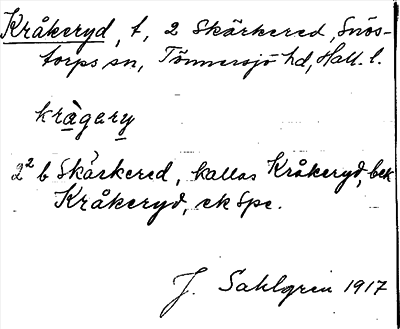 Kråkeryd, t, 2 Skärkered, Snös-
torps sn, Tönnersjö hd, Hall. l.
krågary
2² b Skärkered, kallas Kråkeryd, bek
Kråkeryd, ek Spe.
J. Sahlgren 1917